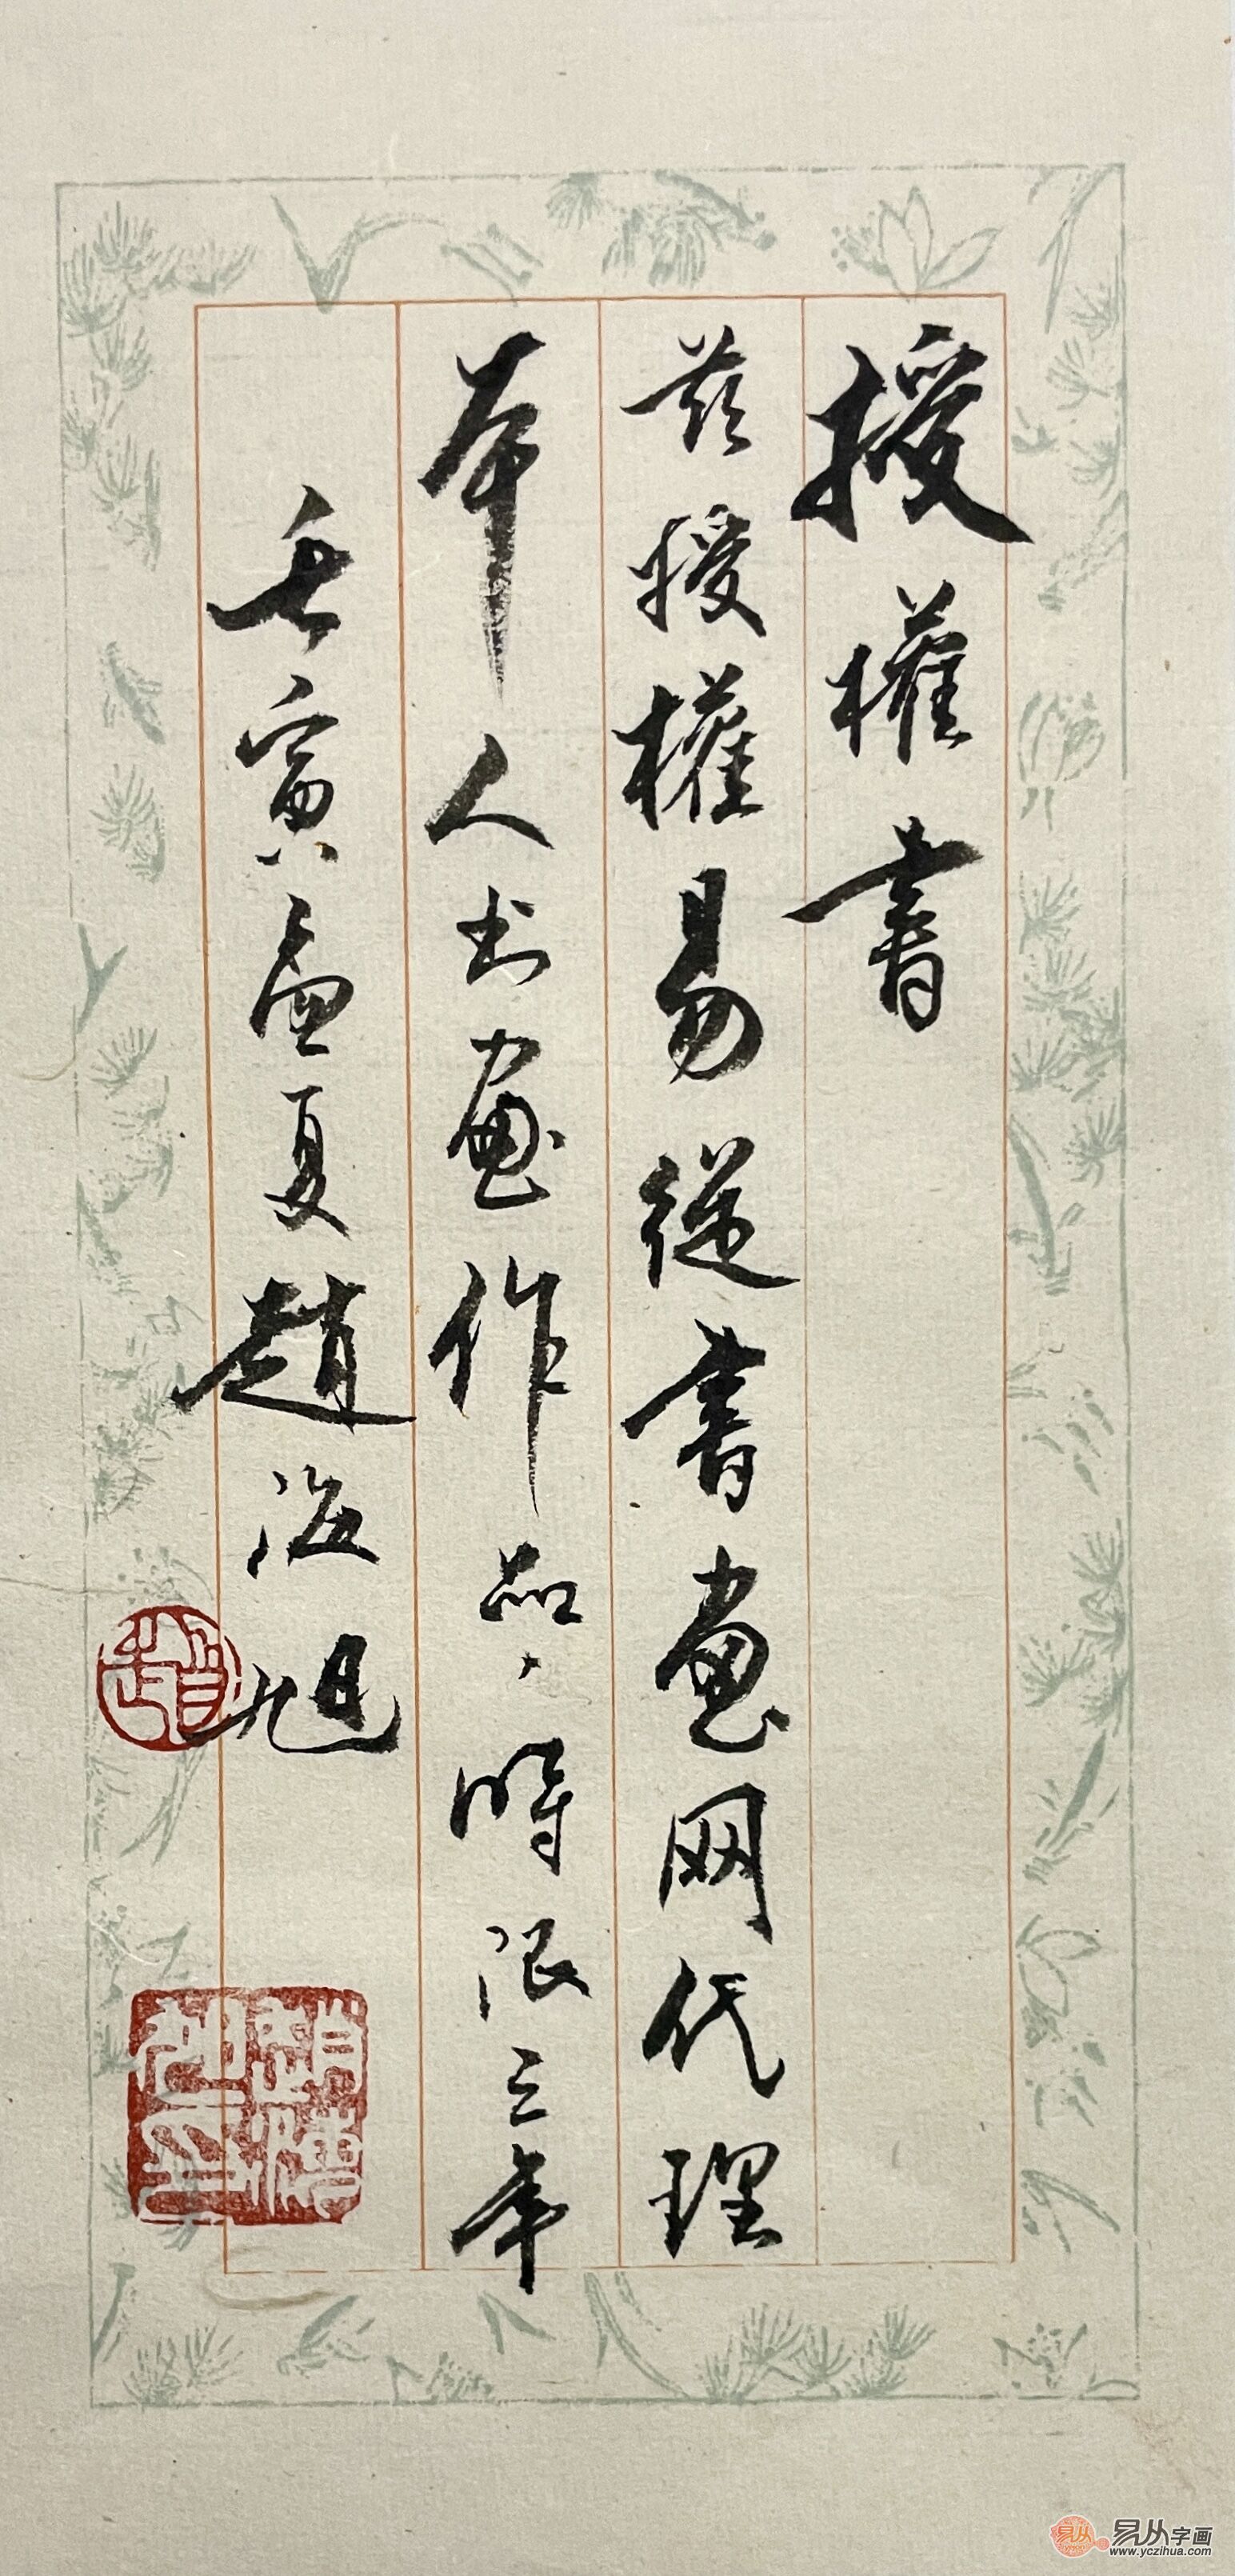 授權書
茲授權易從書畫网代理
本人书畫作品，時限三年
壬寅孟夏趙海旭
易从
易从字画
www.yczihua.com